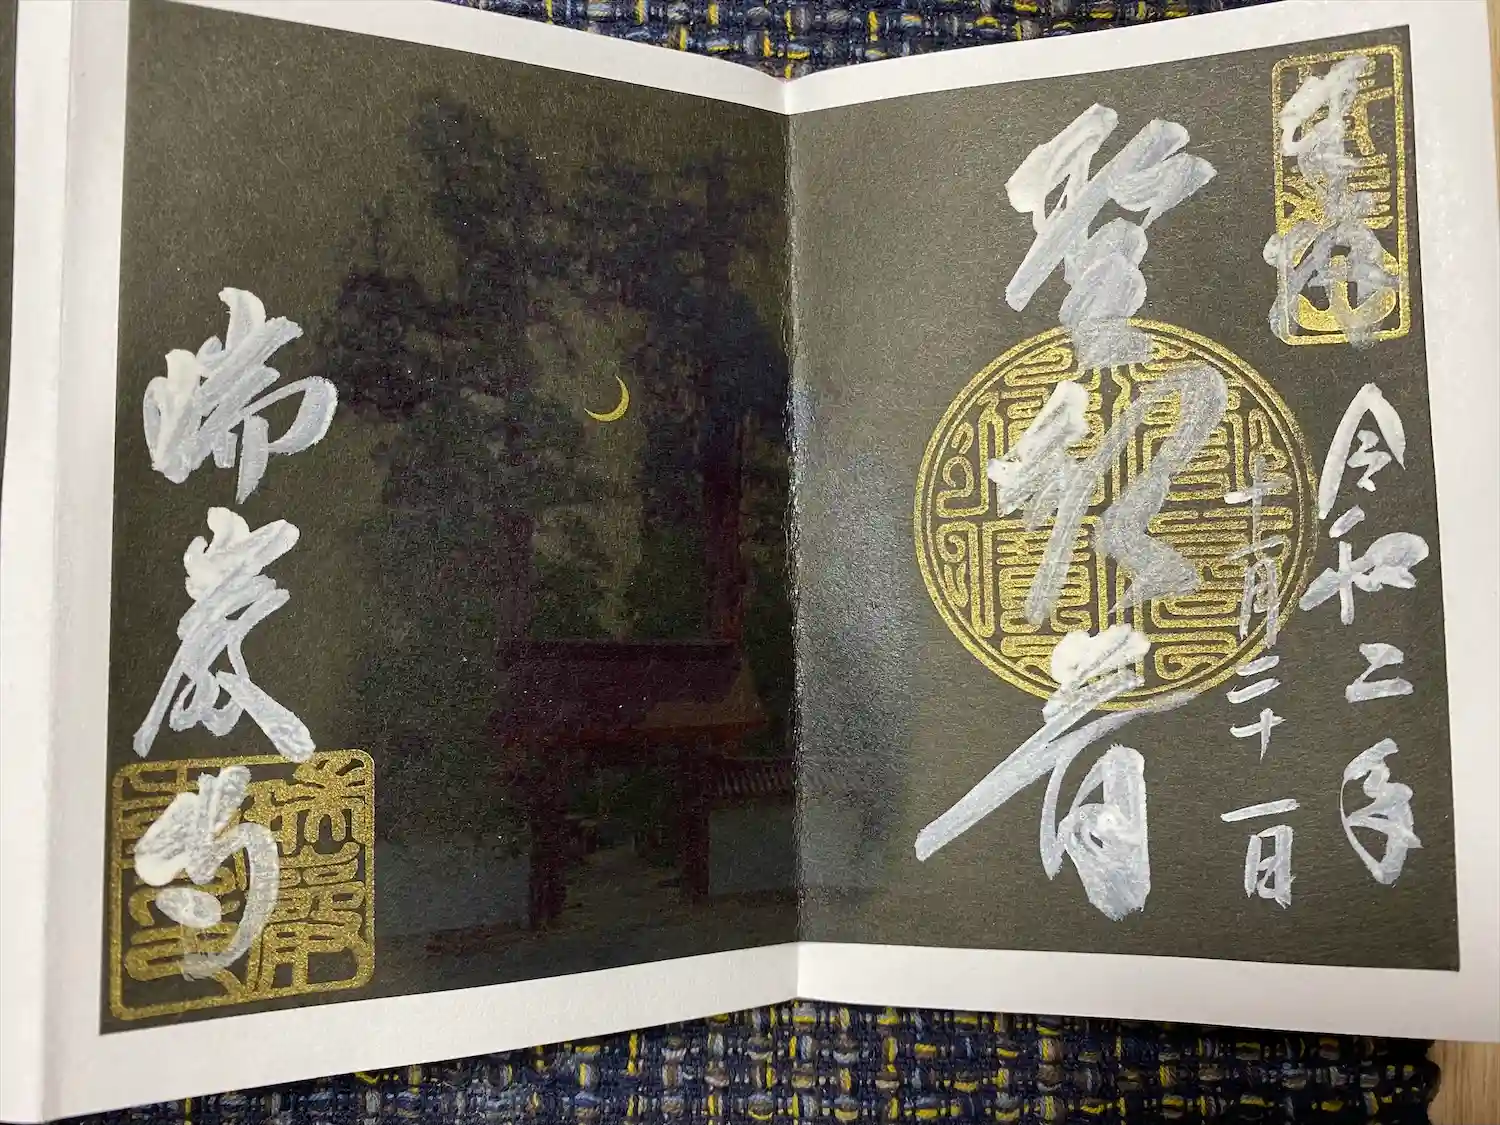 奉拝
令和二年
十一月二十一日
聖観音
瑞巌寺